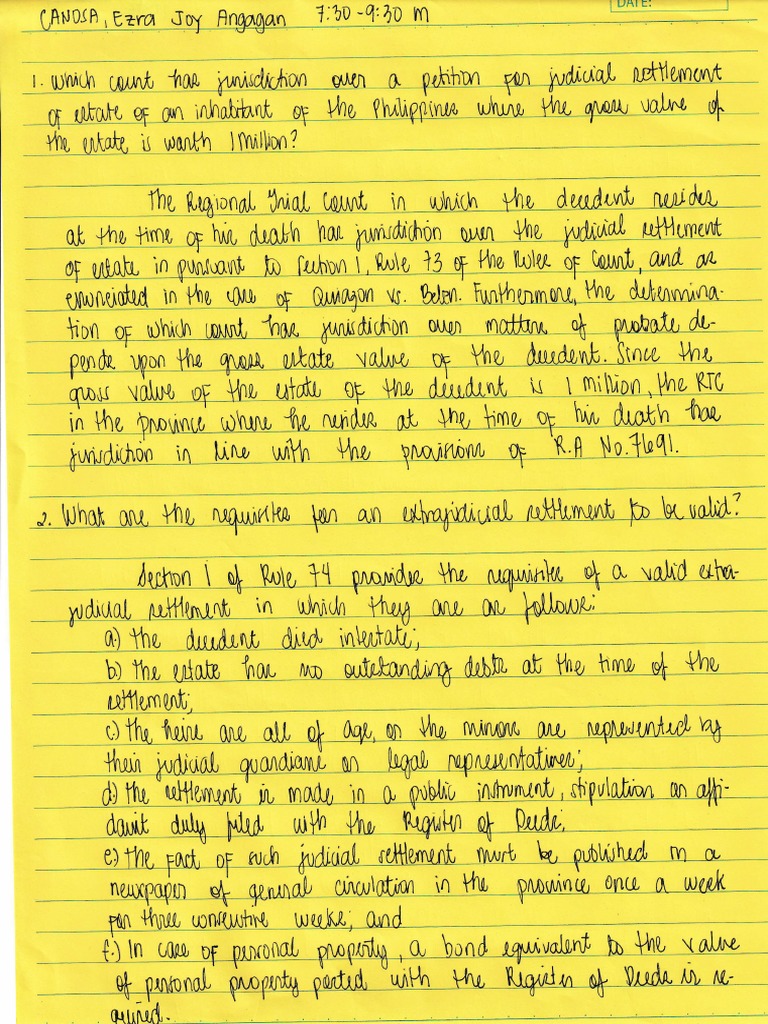 DATE:
CANOSA, Ezra Joy Angagan 7:30-9:30 M
1. Which court has jurisdiction over a petition for judicial settlement
of estate of an inhabitant of the Philippines where the gross value of
the estate is worth 1 million?
The Regional Trial Court in which the decedent resides
at the time of his death has jurisdiction over the judicial settlement
of estate in pursuant to Section 1, Rule 73 of the Rules of Court, and as
enunciated in the case of Quiazon vs. Belen. Furthermore, the determina-
tion of which court has jurisdiction over matters of probate de-
pends upon the gross estate value of the decedent. Since the
gross value of the estate of the decedent is 1 million, the RTC
in the province where he resides at the time of his death has
jurisdiction in line with the provisions of R.A No. 7691.
2. What are the requisites for an extrajudicial settlement to be valid?
Section 1 of Rule 74 provides the requisites of a valid extra-
judicial settlement in which they are as follows:
a.) the decedent died intestate;
b.) the estate has no outstanding debts at the time of the
settlement;
c.) the heirs are all of age, or the minors are represented by
their judicial guardians or legal representatives;
d.) the settlement is made in a public instrument, stipulation or affi-
davit duly filed with the Register of Deeds;
e.) the fact of such judicial settlement must be published in a
newspaper of general circulation in the province once a week
for three consecutive weeks; and
f.) In case of personal property, a bond equivalent to the value
of personal property posted with the Register of Deeds is re-
quired.